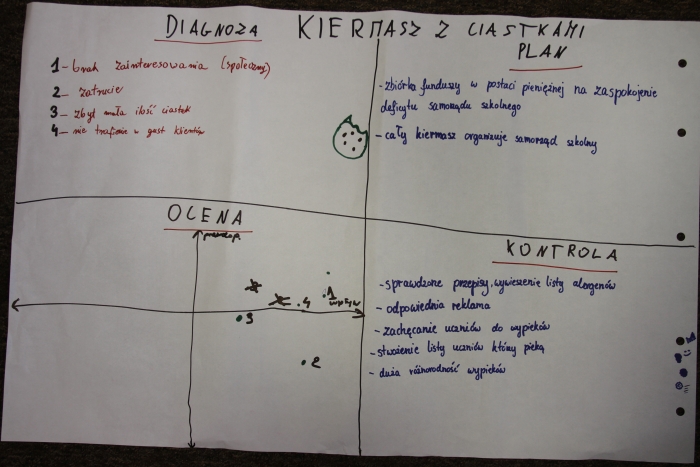 KIERMASZ Z CIASTKAMI
DIAGNOZA
1 – brak zainteresowania (społeczny)
2 – zatrucie
3 – zbyt mała ilość ciastek
4 – nie trafienie w gust klientów
PLAN
- zbiórka funduszy w postaci pieniężnej na zaspokojenie
deficytu samorządu szkolnego
- cały kiermasz organizuje samorząd szkolny
OCENA
prawdop.
1
wpływ
4
3
2
KONTROLA
- sprawdzone przepisy, wywieszenie listy alergenów
- odpowiednia reklama
- zachęcanie uczniów do wypieków
- stwożenie listy uczniów który pieką
- duża różnorodność wypieków